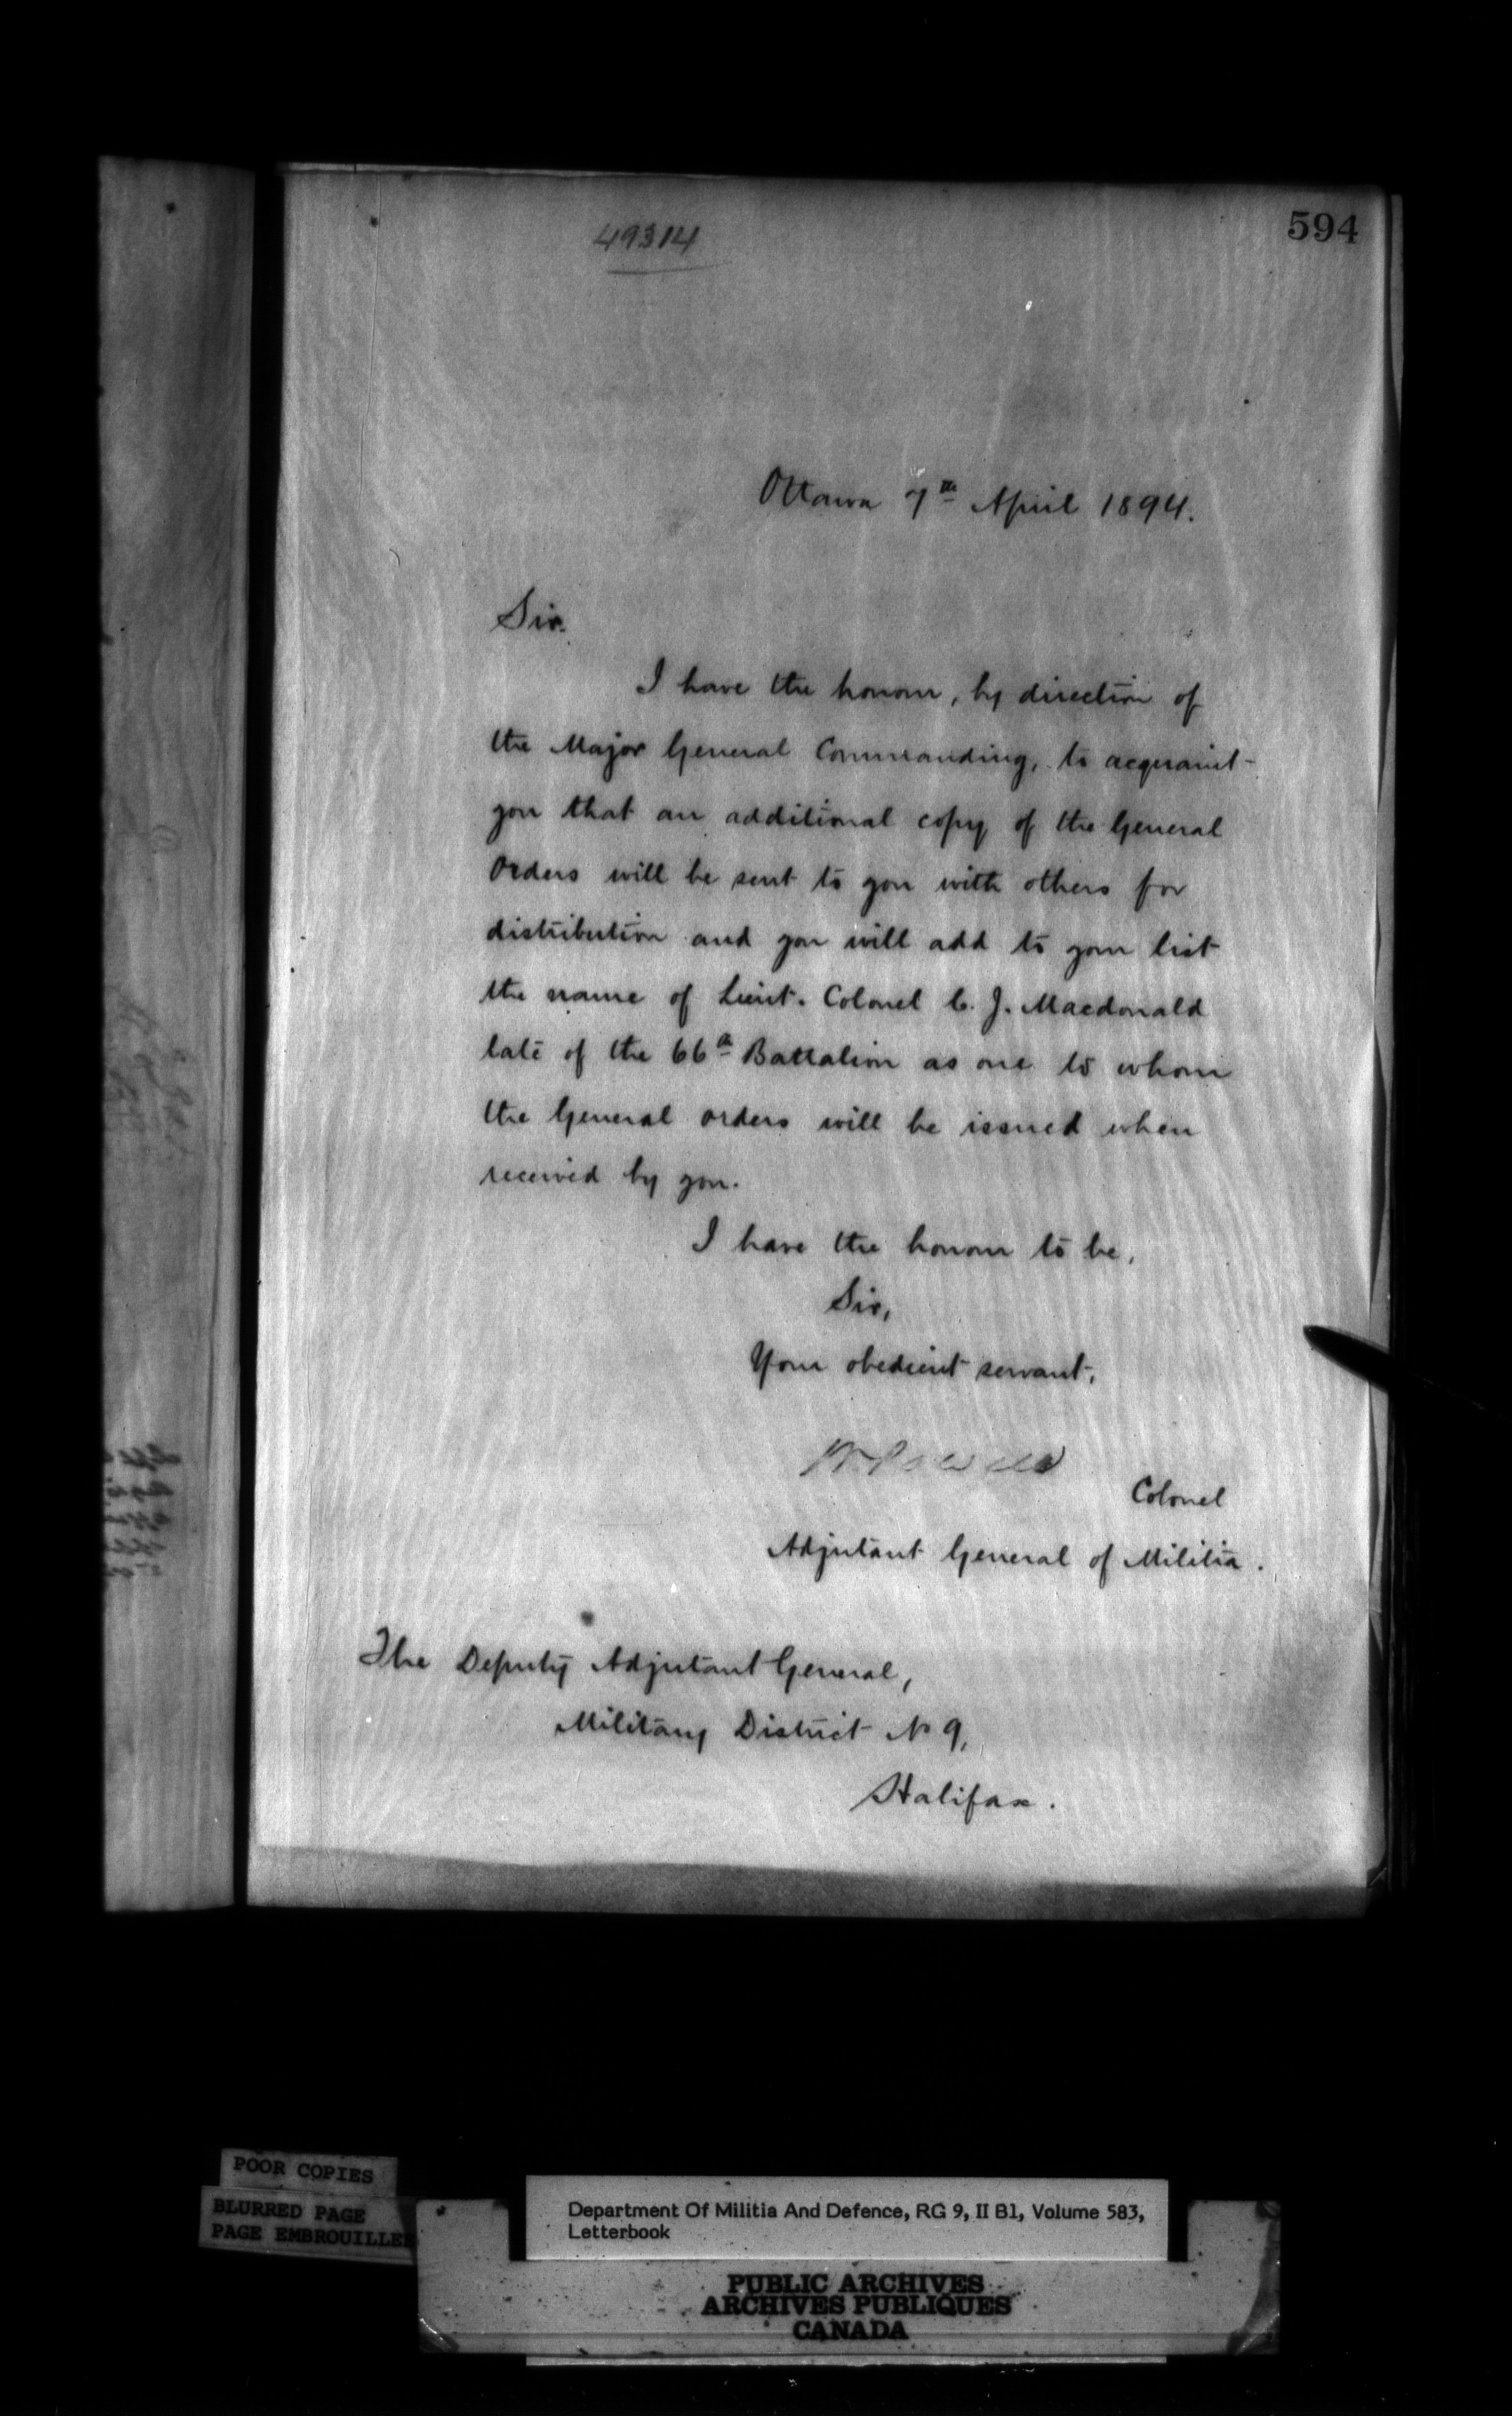 594
49314
Ottawa 7th April 1894.
Sir.
I have the honour, by direction of
the Major General Commanding, to acquaint
you that an additional copy of the General
Orders will be sent to you with others for
distribution and you will add to your list
the name of Lieut. Colonel C. J. Macdonald
late of the 66th Battalion as one to whom
the General orders will be issued when
received by you.
I have the honour to be,
Sir,
Your obedient servant,
W Powell
Colonel
Adjutant General of Militia.
The Deputy Adjutant General,
Military District No 9,
Halifax.
POOR COPIES
BLURRED PAGE
PAGE EMBROUILLEE
Department Of Militia And Defence, RG 9, II B1, Volume 583,
Letterbook
PUBLIC ARCHIVES
ARCHIVES PUBLIQUES
CANADA